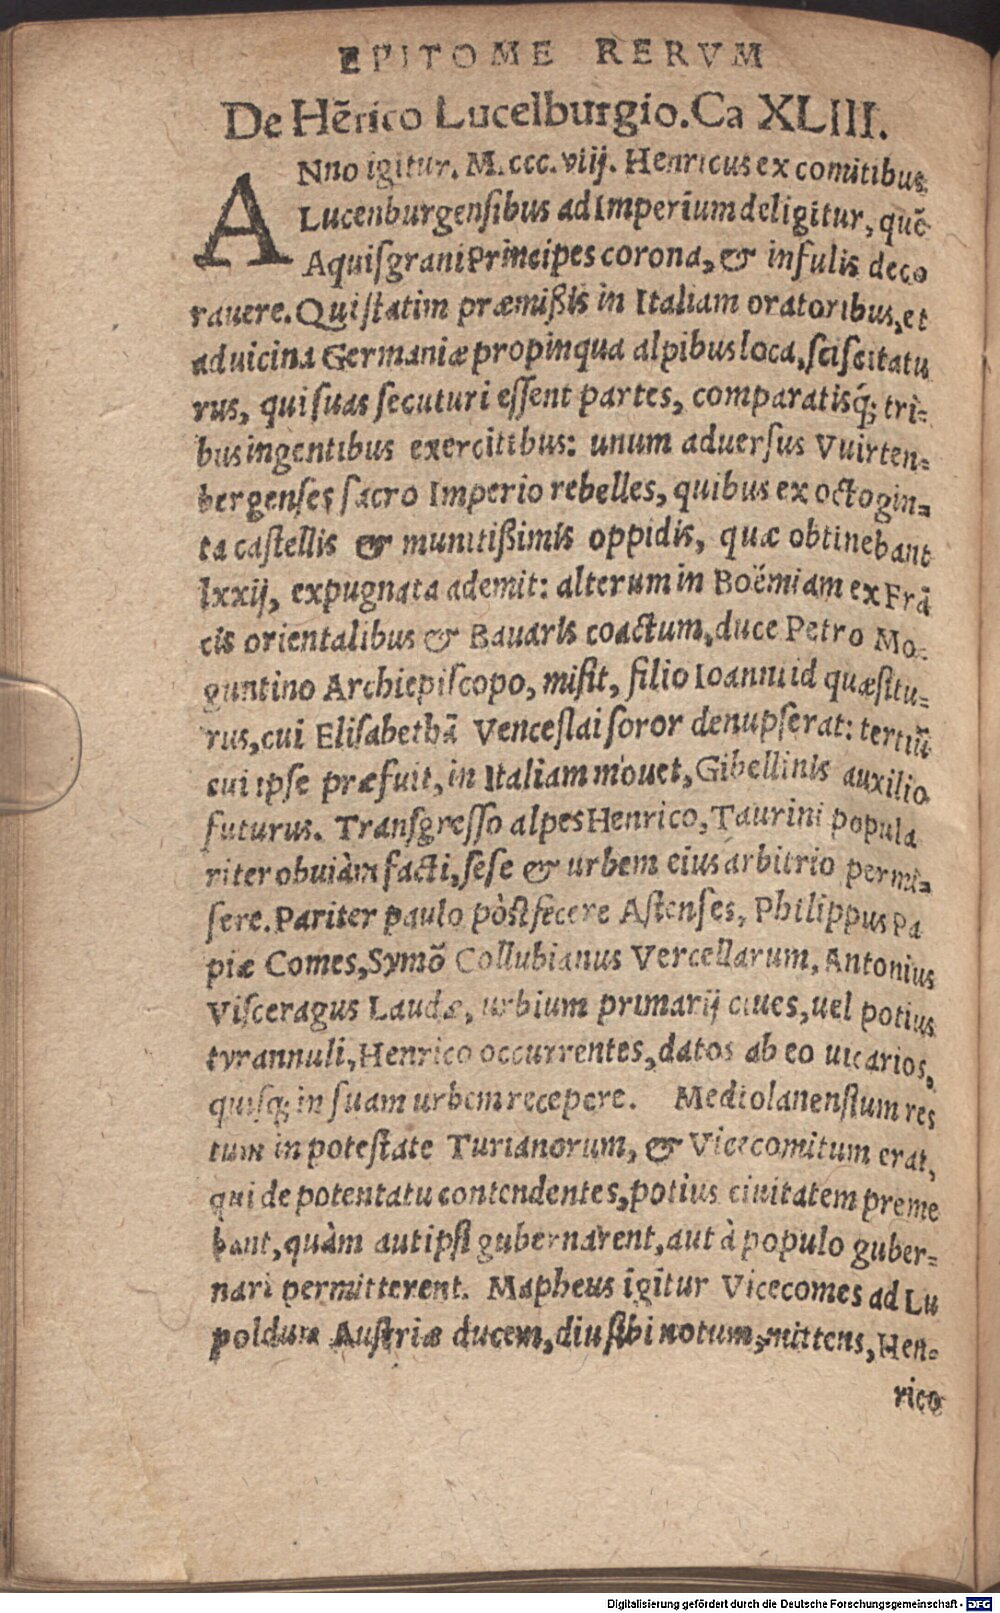 EPITOME RERVM
De Hẽrico Lucelburgio. Ca XLIII.
ANno igitur. M. ccc. viij. Henricus ex comitibus
Lucenburgensibus ad Imperium deligitur, quẽ
Aquisgrani Principes corona, & infulis deco
rauere. Qui statim præmißis in Italiam oratoribus, et
ad uicina Germaniæ propinqua alpibus loca, sciscitatu
rus, qui suas secuturi essent partes, comparatisq́; tri-
bus ingentibus exercitibus: unum aduersus Vuirten-
bergenses sacro Imperio rebelles, quibus ex octogin-
ta castellis & munitißimis oppidis, quæ obtinebant
lxxij, expugnata ademit: alterum in Boëmiam ex Frã
cis orientalibus & Bauaris coactum, duce Petro Mo-
guntino Archiepiscopo, misit, filio Ioanni id quæsitu-
rus, cui Elisabethã Venceslai soror denupserat: tertiũ
cui ipse præfuit, in Italiam mouet, Gibellinis auxilio
futurus. Transgresso alpes Henrico, Taurini popula
riter obuiàm facti, sese & urbem eius arbitrio permi-
sere. Pariter paulo pòst fecere Astenses, Philippus Pa
piæ Comes, Symõ Collubianus Vercellarum, Antonius
Visceragus Laudæ, urbium primarij ciues, uel potius
tyrannuli, Henrico occurrentes, datos ab eo uicarios,
quisq; in suam urbem recepere. Mediolanensium res
tum in potestate Turianorum, & Vicecomitum erat,
qui de potentatu contendentes, potius ciuitatem preme
bant, quàm aut ipsi gubernarent, aut à populo guber-
nari permitterent. Mapheus igitur Vicecomes ad Lu
poldum Austriæ ducem, diu sibi notum, mittens, Hen-
rico
Digitalisierung gefördert durch die Deutsche Forschungsgemeinschaft - DFG